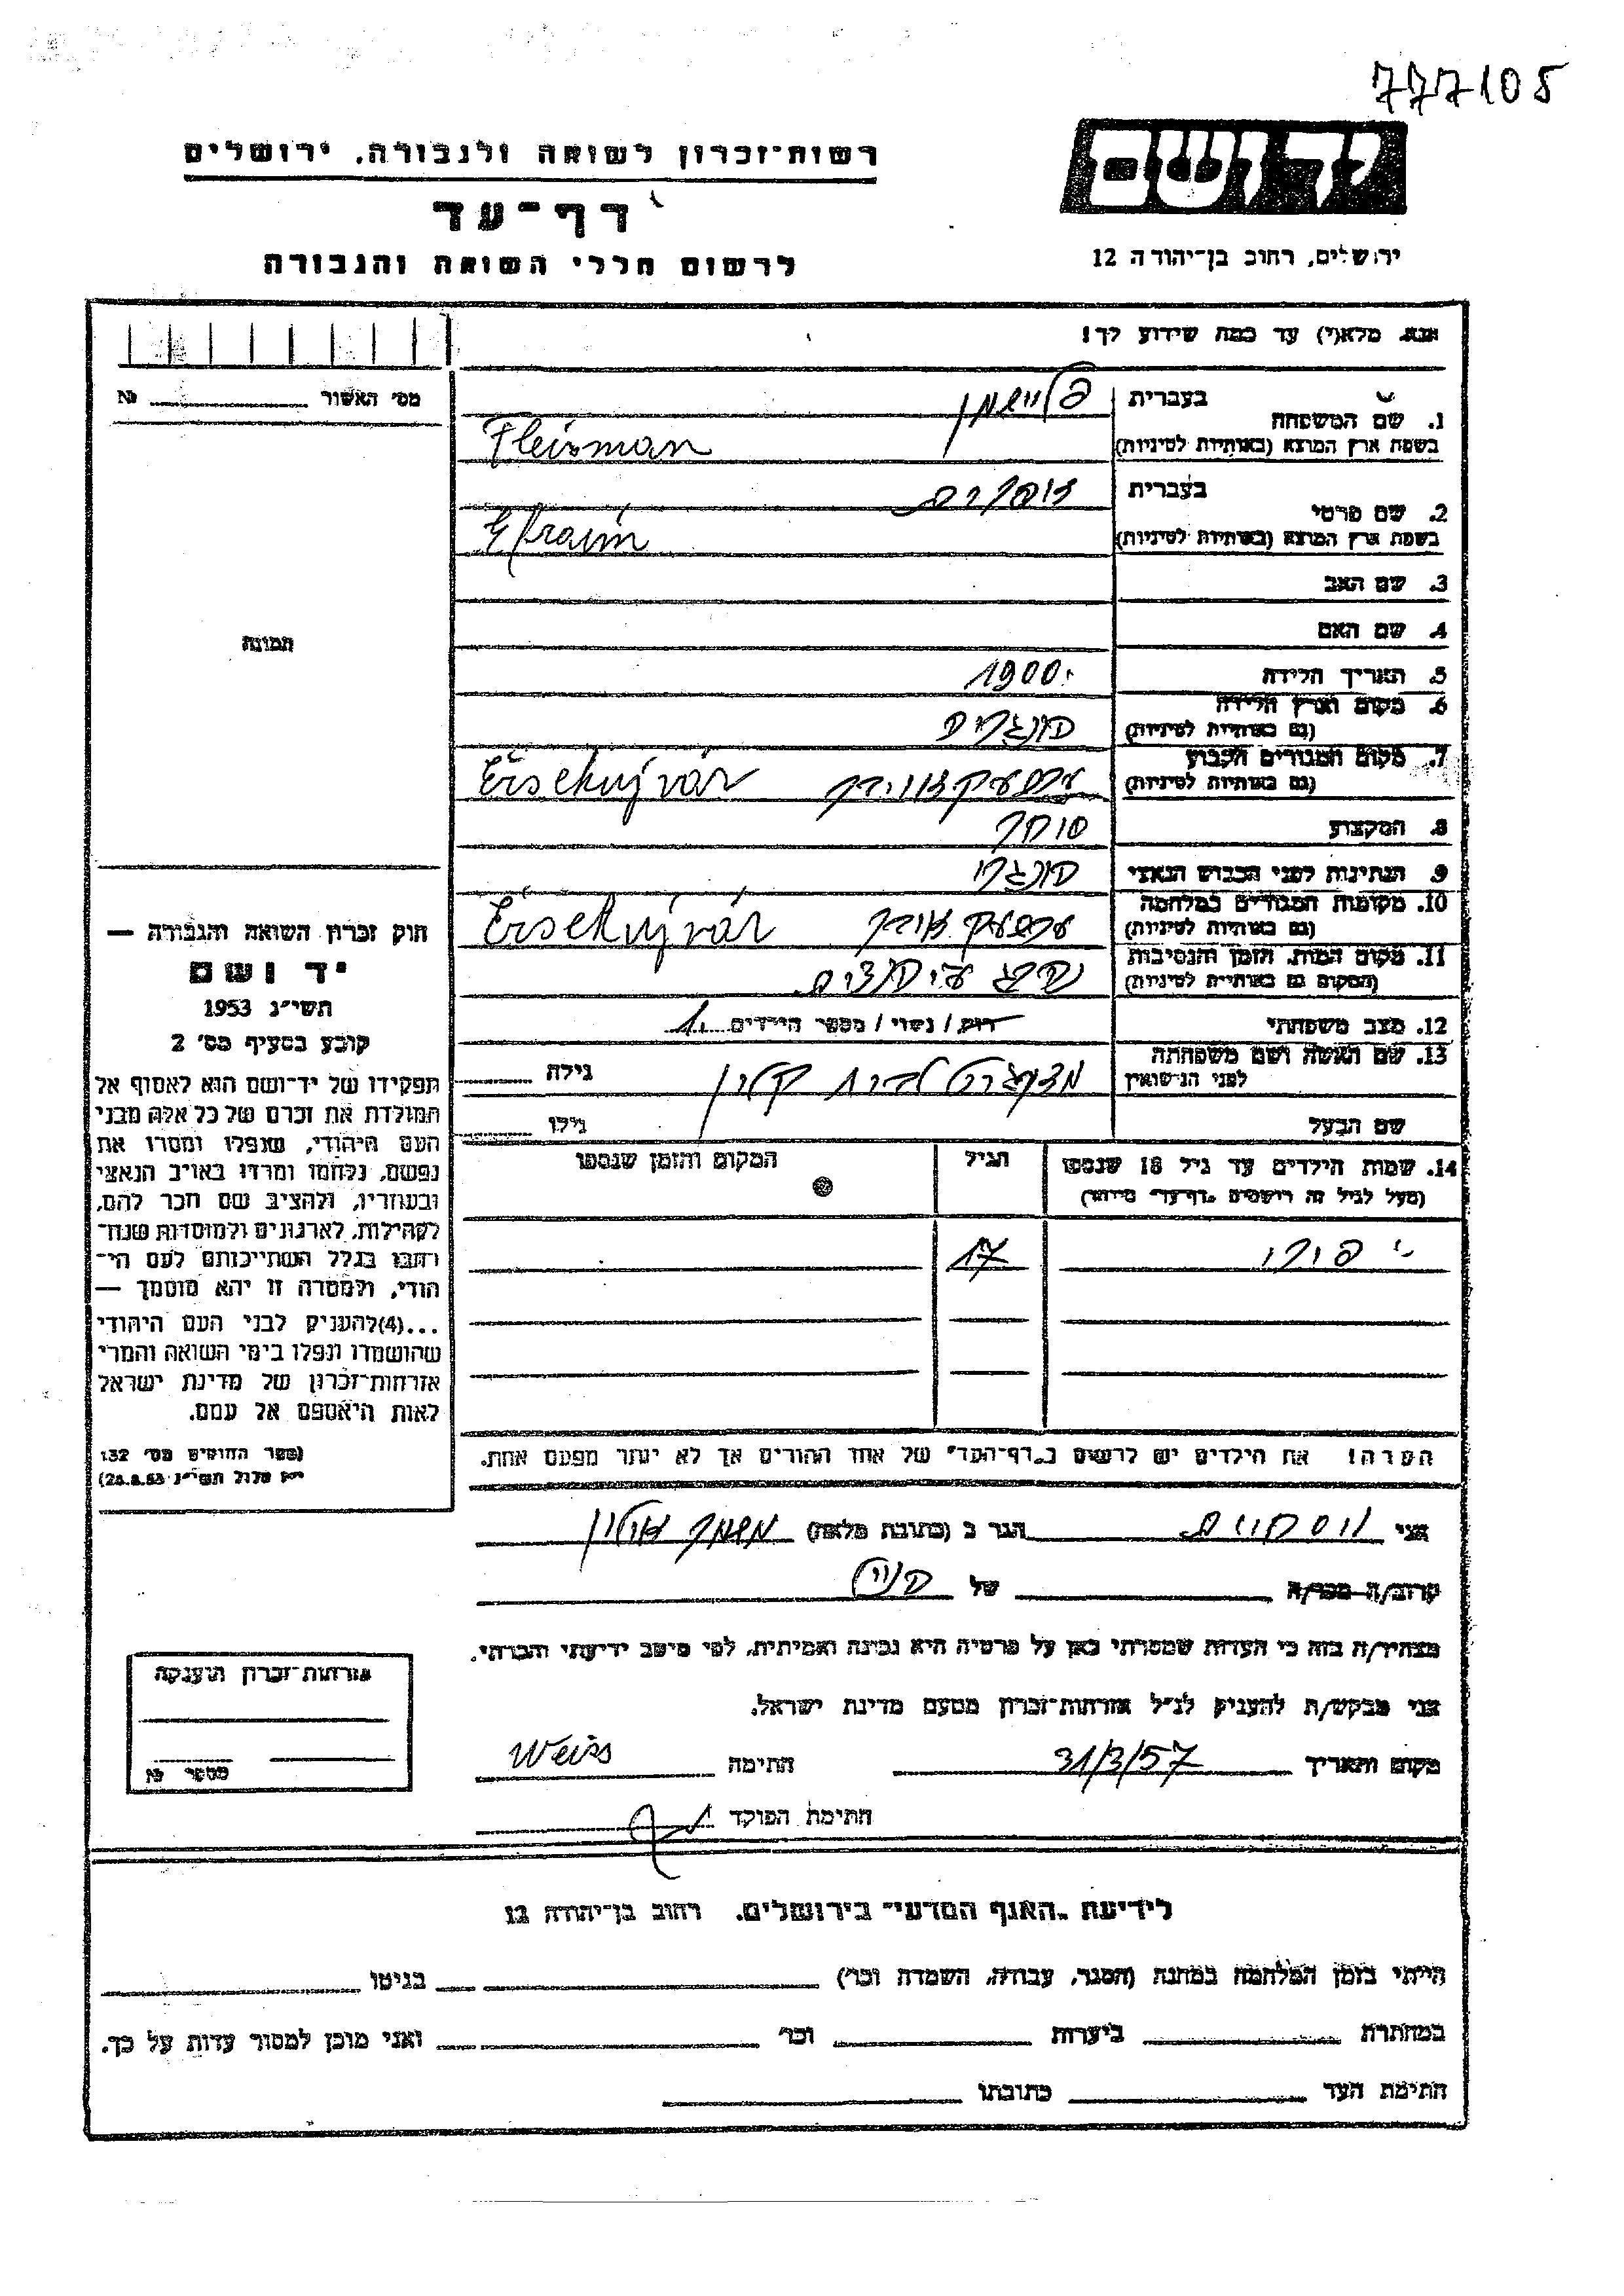 777105
יד ושם
רשות־זכרון לשואה ולגבורה, ירושלים
דף־עד
לרשום חללי השואה והגבורה
ירושלים, רחוב בן־יהודה 12
אנא, מלא(י) עד כמה שידוע לך!
מס' האשור № 
1. שם המשפחה
בעברית פליישמן
בשפת ארץ המוצא (באותיות לטיניות) Fleisman
2. שם פרטי
בעברית אפרים
בשפת ארץ המוצא (באותיות לטיניות) Efraim
3. שם האב
4. שם האם
תמונה
5. תאריך הלידה 1900
6. מקום וארץ הלידה
(גם באותיות לטיניות) הונגריה
7. מקום המגורים הקבוע
(גם באותיות לטיניות) Érsekujvár
8. המקצוע סוחר
9. הנתינות לפני הכבוש הנאצי הונגרי
10. מקומות המגורים במלחמה
(גם באותיות לטיניות) Érsekujvár
11. מקום המות, הזמן והנסיבות
(המקום גם באותיות לטיניות)
12. מצב משפחתי רווק / נשוי / מספר הילדים 1
13. שם האשה ושם משפחתה
לפני הנישואין מרגרט לבית קליין גילה
שם הבעל גילו
14. שמות הילדים עד גיל 18 שנספו
(מעל לגיל זה רושמים „דף־עד" מיוחד)
הגיל
המקום והזמן שנספו
17
הערה! את הילדים יש לרשום ב„דף־העד" של אחד ההורים אך לא יותר מפעם אחת.
חוק זכרון השואה והגבורה —
יד ושם
תשי"ג 1953
קובע בסעיף מס' 2
תפקידו של יד־ושם הוא לאסוף אל
המולדת את זכרם של כל אלה מבני
העם היהודי, שנפלו ומסרו את
נפשם, נלחמו ומרדו באויב הנאצי
ובעוזריו, ולהציב שם וזכר להם,
לקהילות, לארגונים ולמוסדות שנח־
רבו בגלל השתייכותם לעם הי־
הודי, ולמטרה זו יהא מוסמך —
...(4)להעניק לבני העם היהודי
שהושמדו ונפלו בימי השואה והמרי
אזרחות־זכרון של מדינת ישראל
לאות היאספם אל עמם.
(ספר החוקים מס' 132
י"ז אלול תשי"ג 28.8.53)
אני הגר ב (כתובת מלאה)
קרוב/ה מכר/ה של
מצהיר/ה בזה כי העדות שמסרתי כאן על פרטיה היא נכונה ואמיתית, לפי מיטב ידיעתי והכרתי.
אני מבקש/ת להעניק לנ"ל אזרחות־זכרון מטעם מדינת ישראל.
מקום ותאריך 31/3/57 חתימה Weiss
חתימת הפוקד
אזרחות־זכרון הוענקה
מספר №
לידיעת „האגף המדעי" בירושלים, רחוב בן־יהודה 12
הייתי בזמן המלחמה במחנה (הסגר, עבודה, השמדה וכו') בגיטו
במחתרת ביערות וכו' ואני מוכן למסור עדות על כך.
חתימת העד כתובתו